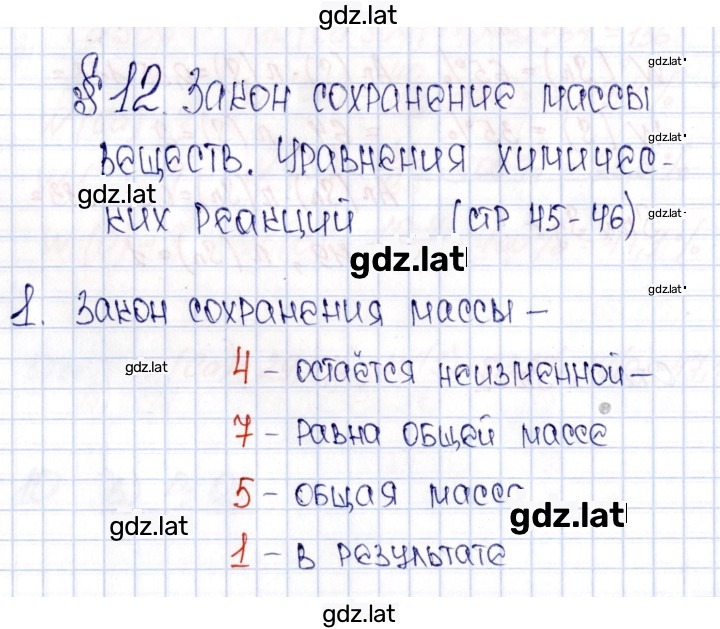 gdz.lat
gdz.lat
§12. Закон сохранение массы
gdz.lat
веществ. Уравнения химичес-
gdz.lat
ких реакций (стр 45-46) gdz.lat
gdz.lat
gdz.lat
1. Закон сохранения массы -
gdz.lat
4 - остаётся неизменной -
7 - равна общей массе
5 - общая
gdz.lat
gdz.lat
1 - в результате
gdz.lat